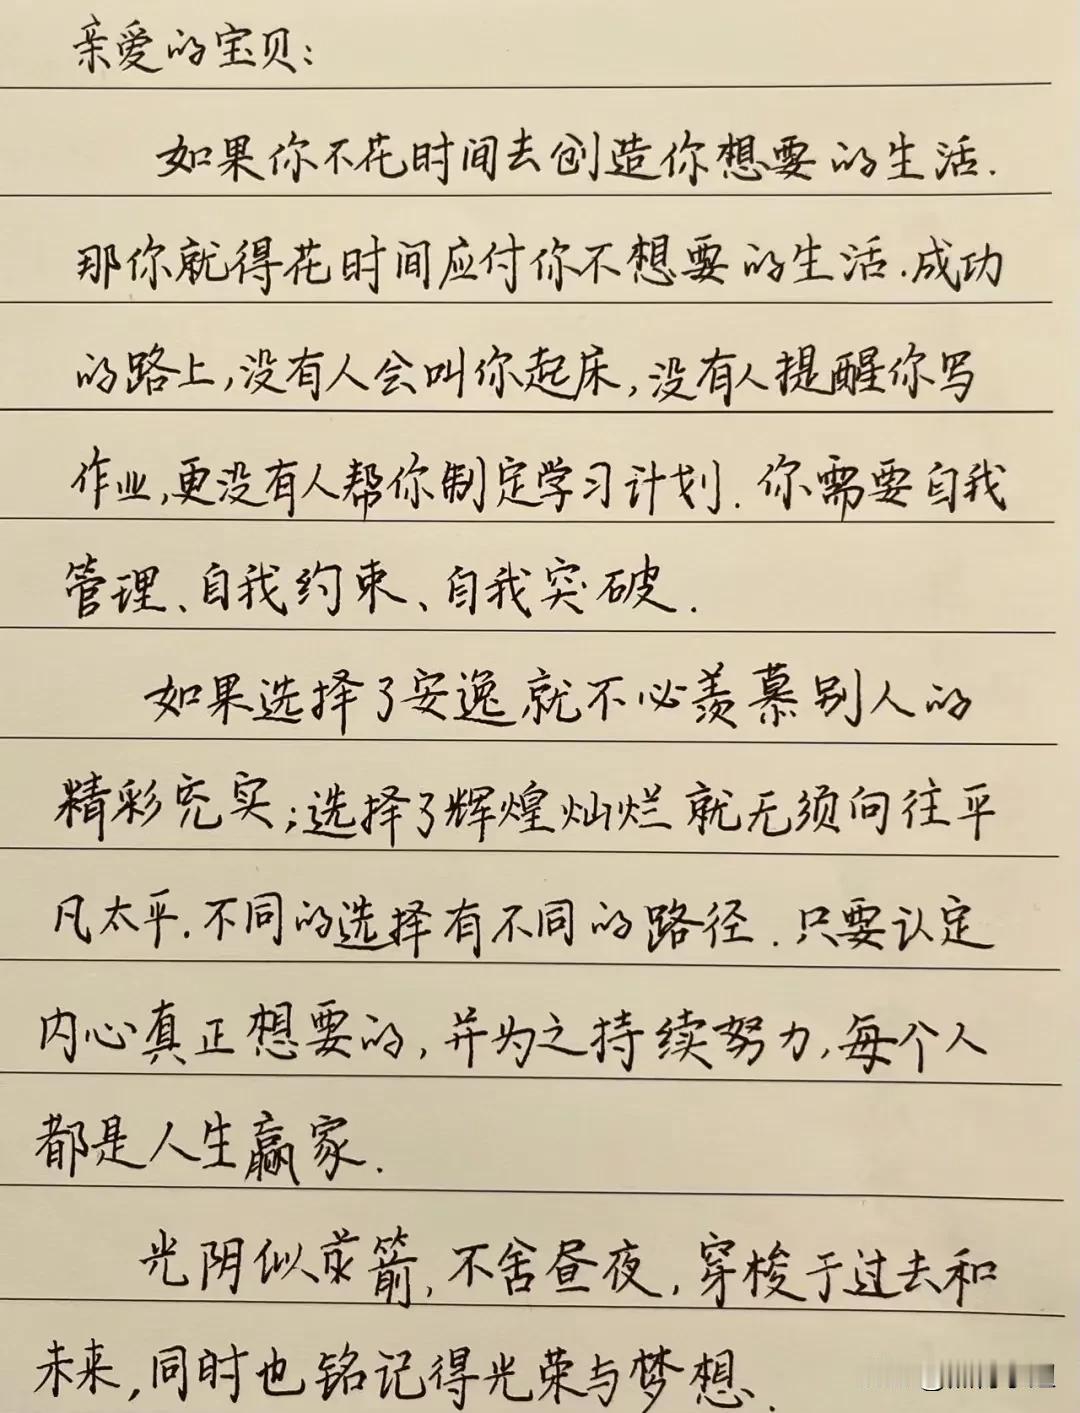 亲爱的宝贝:
如果你不花时间去创造你想要的生活.
那你就得花时间应付你不想要的生活.成功
的路上,没有人会叫你起床,没有人提醒你写
作业,更没有人帮你制定学习计划.你需要自我
管理、自我约束、自我突破.
如果选择了安逸,就不必羡慕别人的
精彩充实;选择了辉煌灿烂就无须向往平
凡太平.不同的选择有不同的路径.只要认定
内心真正想要的,并为之持续努力,每个人
都是人生赢家.
光阴似箭,不舍昼夜,穿梭于过去和
未来,同时也铭记得光荣与梦想.